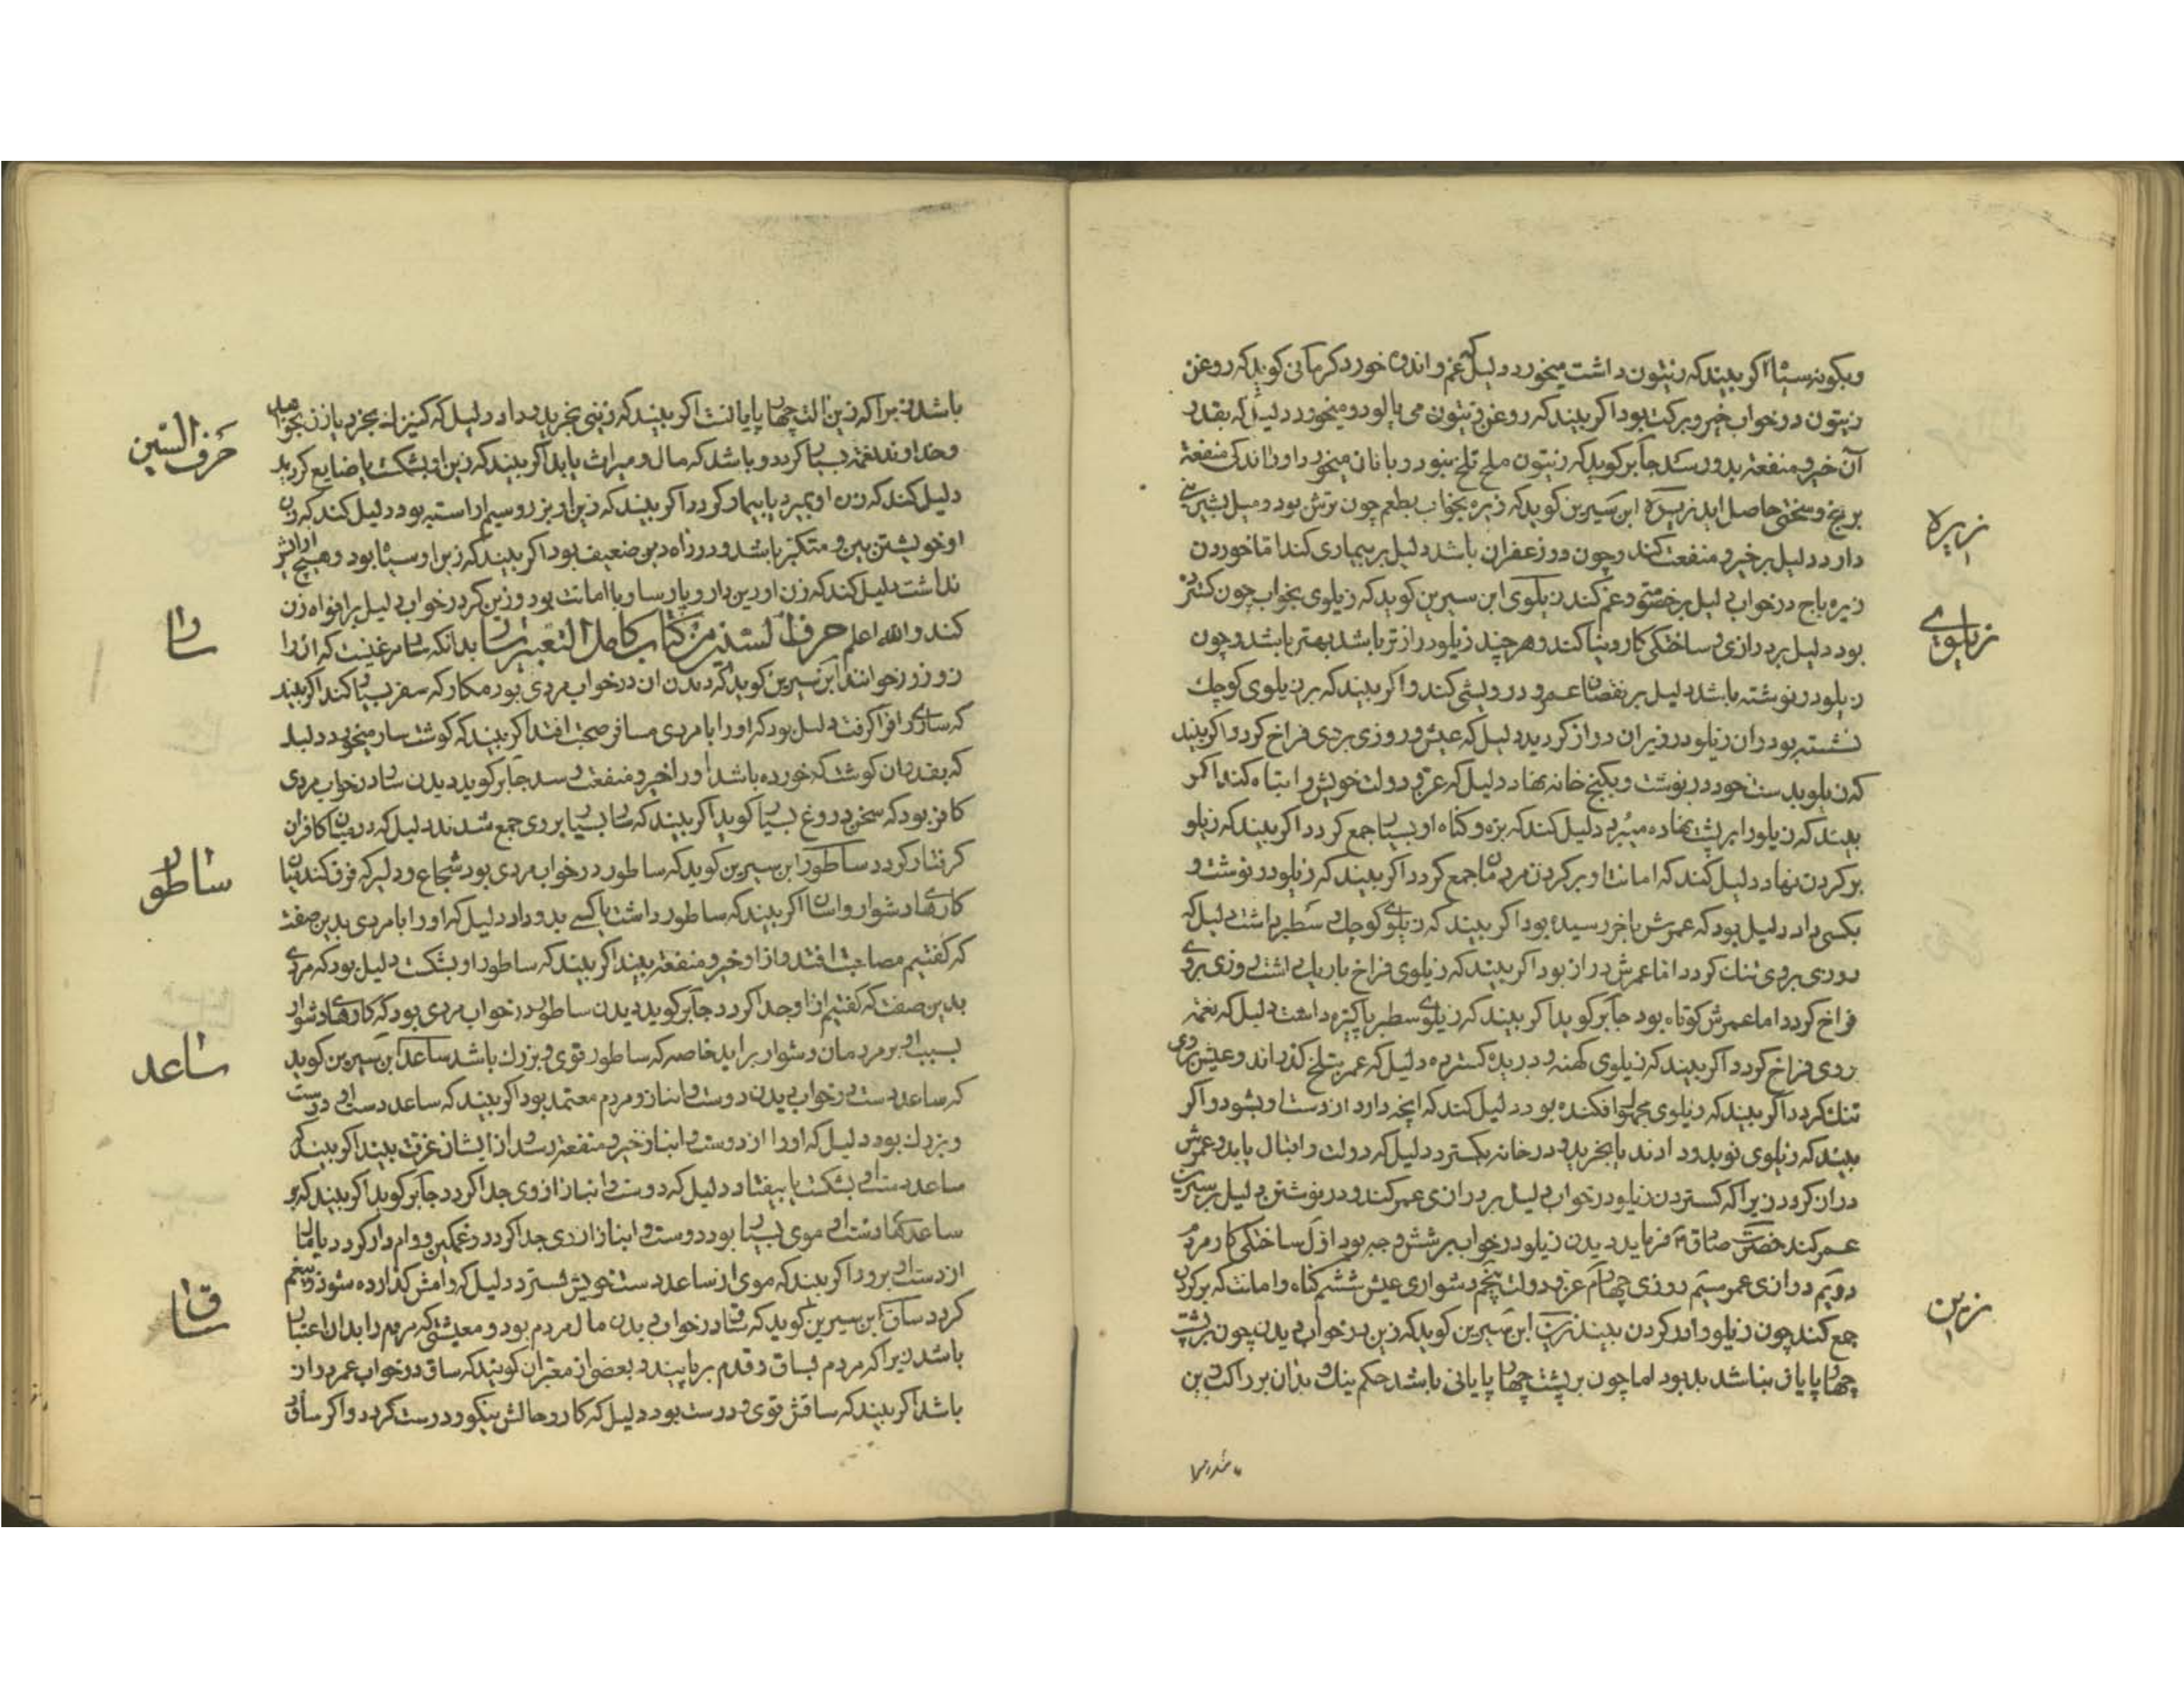 وبکونه سیاا اکر بیند که زیتون داشت میخورد دلیل که غم و اندوه خورد کرمانی کوید که روغن
زیتون در خواب خیر و برکت بود اکر بیند که روغن زیتون می پالود و میخورد دلیل که بقدر
آن خیر و منفعة بدو رسد جابر کوید که زیتون ملح تلخ بود و با نان میخورد اورا اندکی منفعة
برنج و سختی حاصل اید زیره ابن سیرین کوید که زیره بخواب بطعم چون ترش بود و میل بشیرینی
دارد دلیل بر خیر و منفعت کند و چون دو زعفران باشد دلیل بر بیماری کند اما خوردن
زیره باج در خواب دلیل بر خصومتی و غم کند زیلوی ابن سیرین کوید که زیلوی بخواب چون کستر
بود دلیل بر درازی و ساختکی کار دنیا کند و هر چند زیلو درازتر باشد بهتر باشد و چون
زیلو در نوشته باشد دلیل بر نقصان عمر و درویشی کند و اکر بیند که بر زیلوی کوچک
نشسته بود و ان زیلو در زیر ان دراز کردید دلیل که عیش و روزی بر وی فراخ کردد اکر بیند
که زیلو بدست خود در نوشت و بکنج خانه نهاد دلیل که عز و دولت خویش را تباه کند اکر
بیند که زیلو را بر پشت نهاده میبرد دلیل کند که بزه و کناه او بسیار جمع کردد اکر بیند که زیلو
بر کردن نهاد دلیل کند که امانتها و بر کردن مردمان جمع کردد اکر بیند که زیلو در نوشت و
بکسی داد دلیل بود که عمرش باخر رسیده بود اکر بیند که زیلوی کوچک و سطبر داشت دلیل که
روزی بر وی تنک کردد اما عمرش دراز بود اکر بیند که زیلوی فراخ باریک داشت روزی بر وی
فراخ کردد اما عمرش کوتاه بود جابر کوید اکر بیند که زیلوی سطبر پاکیزه داشت دلیل که نعمة
روی فراخ کردد اکر بیند که زیلوی کهنه و دریده کسترده دلیل که عمر بتلخ کذراند و عیش بر وی
تنک کردد اکر بیند که زیلوی مجهول افکنده بود دلیل کند که انچه دارد از دست او بشود و اکر
بیند که زیلوی نو بدو دادند یا بخرید و در خانه بکسترد دلیل که دولت و اقبال یابد و عمرش
دراز کردد زیرا که کستردن زیلو در خواب دلیل بر درازی عمر کند و در نوشتن دلیل بر سپری
عمر کند حضرت صادق فرماید دیدن زیلو در خواب بر شش وجه بود اول ساختکی کار مردم
دویم درازی عمر سیم روزی چهارم عز و دولت پنجم دشواری عیش ششم کناه و امانت که بر کردن
جمع کند چون زیلو در کردن بیند زین ابن سیرین کوید که زین در خواب دیدن چون بر پشت
چهار پایان نباشد بد بود اما چون بر پشت چهار پایانی باشد حکم نیک و بد ان بر راکب زین
زیره
زیلوی
زین
باشد زیرا که زین الت چهار پایانست اکر بیند که زینی بخرید و داد دلیل که کنیزک بخرد یا زن بخواهد
و خداوند نعمة بسیار کردد و باشد که مال و میراث یابد اکر بیند که زین او بشکست یا ضایع کردید
دلیل کند که زن او بمیرد یا بیمار کردد اکر بیند که زین او بزر و سیم اراسته بود دلیل کند که زن
او خویشتن بین و متکبر باشد و در راه دین ضعیف بود اکر بیند که زین او سیاه بود و هیچ ارایش
نداشت دلیل کند که زن او دین دار و پارسا و با امانت بود و زین کر در خواب دلیل بر افواه زن
کند والله اعلم حرف السین من کتاب کامل التعبیر سار بدانکه سار مرغیست که انرا
زوزور خوانند ابن سیرین کوید که دیدن ان در خواب مردی بود مکار که سفر بسیار کند اکر بیند
که ساری را فرا کرفت دلیل بود که او را با مردی مسافر صحبت افتد اکر بیند که کوشت سار میخورد دلیل
که بقدر ان کوشت که خورده باشد او را خیر و منفعت رسد جابر کوید دیدن سار در خواب مردی
کافر بود که سخن دروغ بسیار کوید اکر بیند که سار بسیار بر وی جمع شدند دلیل که در میان کافران
کرفتار کردد ساطور ابن سیرین کوید که ساطور در خواب مردی بود شجاع و دلیر که فرق کند میان
کارهای دشوار و اسان اکر بیند که ساطور داشت یا کسی بدو داد دلیل که او را با مردی بدین صفت
که کفتیم مصاحبت افتد و از او خیر و منفعة بیند اکر بیند که ساطور او بشکست دلیل بود که مردی
بدین صفت که کفتیم از او جدا کردد جابر کوید دیدن ساطور در خواب مردی بود که کارهای دشوار
بسبب او بر مردمان دشوار براید خاصه که ساطور قوی و بزرک باشد ساعد ابن سیرین کوید
که ساعد دست در خواب دیدن دوست و انباز و مردم معتمد بود اکر بیند که ساعد دست او درست
و بزرک بود دلیل که او را از دوست و انباز خیر و منفعة رسد و از ایشان عزت بیند اکر بیند که
ساعد دست او بشکست یا بیفتاد دلیل که دوست و انباز از وی جدا کردد جابر کوید اکر بیند که بر
ساعدهای دست او موی بسیار بود دوست و انباز از وی جدا کردد و غمکین و وام دار کردد یا مال
از دست او برود اکر بیند که موی از ساعد دست خویش بسترد دلیل که وامش کذارده شود و بیغم
کردد ساق ابن سیرین کوید که ساق در خواب دیدن مال مردم بود و معیشتی که مردم را بدان اعتماد
باشد زیرا که مردم بساق و قدم بر پایند و بعضی از معبران کویند که ساق در خواب عمر دراز
باشد اکر بیند که ساقش قوی و درست بود دلیل که کار و حالش نیکو و درست کردد و اکر ساق
حرف السین
سار
ساطور
ساعد
ساق